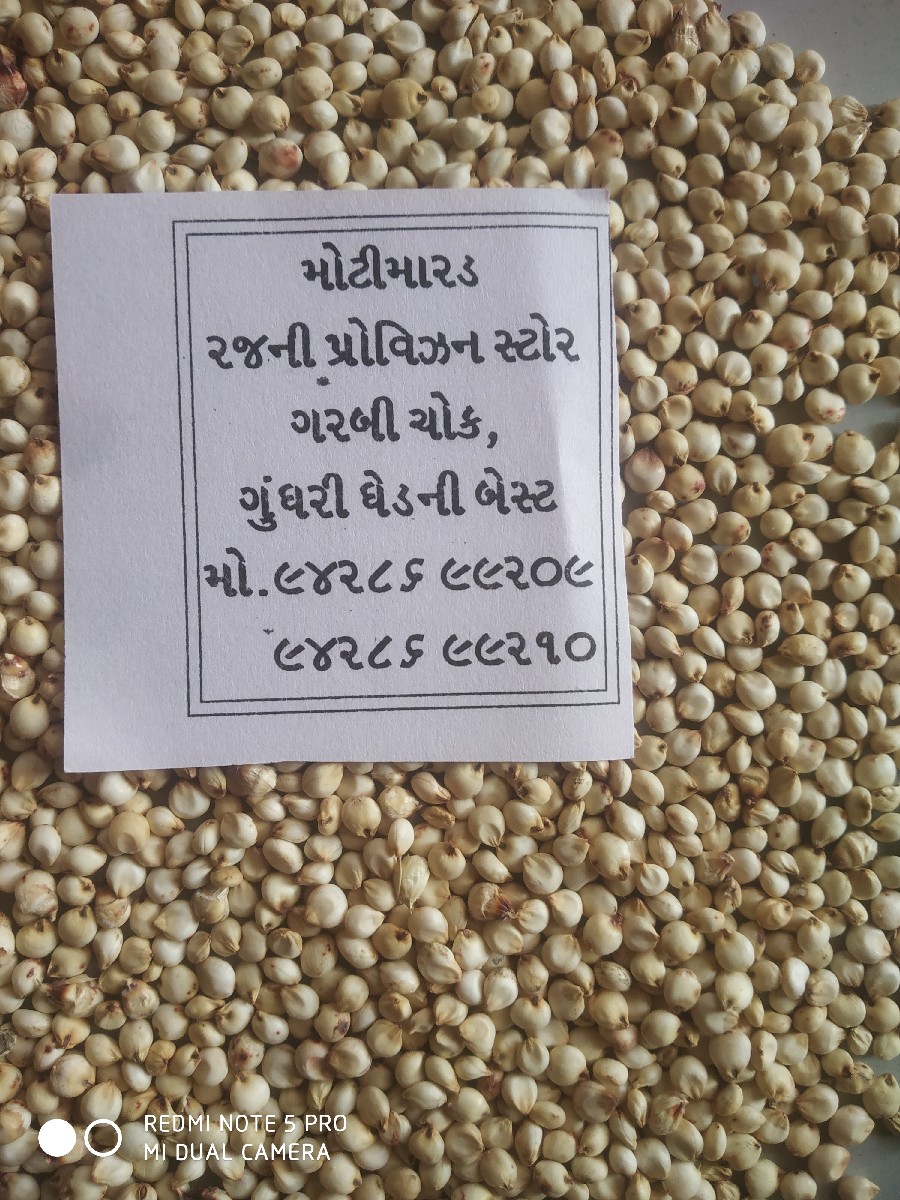 મોટીમારડ
રજની પ્રોવિઝન સ્ટોર
ગરબી ચોક,
ગુંઘરી ઘેડની બેસ્ટ
મો.૯૪૨૮૬ ૯૯૨૦૯
૯૪૨૮૬ ૯૯૨૧૦
REDMI NOTE 5 PRO
MI DUAL CAMERA